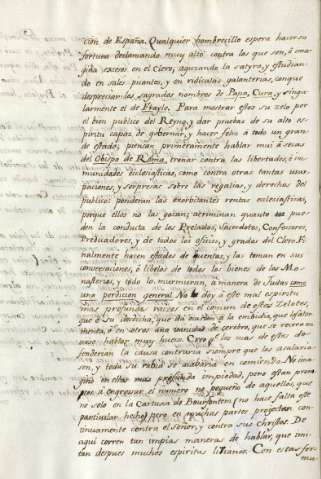 cion de España. Qualquier hombrecillo espera hacer su
fortuna declamando muy alto contra los que son, ó ima-
gina excesos en el Clero, aguzando la satyra, y estudian-
do en sales picantes, y en ridiculas galanterias, con que
desprecian los sagrados nombres de Papa, Cura, y singu-
larmente el de Frayle. Para mostrar estos su zelo por
el bien publico del Reyno, y dar pruebas de su alto es-
piritu capaz de gobernar, y hacer feliz á todo un gran-
de estado; piensan primeramente hablar muy á secas
del Obispo de Roma, tronar contra las libertades, é in-
munidades eclesiasticas, como contra otras tantas usur-
paciones, y sorpresas sobre las regalias, y derechos del
publico: ponderan las exorbitantes rentas eclesiasticas,
porque ellos no las gozan; acriminan quanto pue-
den la conducta de los Prelados, Sacerdotes, Confesores,
Predicadores, y de todos los oficios, y grados del Clero. Fi-
nalmente hacen estados de quentas, y las toman en sus
conversaciones, ó libelos de todos los bienes de los Mo-
nasterios, y todo lo murmuran, á manera de Judas como
una perdicion general. No doy á este mal espiritu
mas profunda raiz en el comun de estos Zelotes,
que ó su codicia, que da á la embidia, que
ó en otros una vanidad de cerebro, que se recrea
hablar muy hueco. Creo que los mas de estos de-
fenderian la causa contraria siempre que se
y toda su rabia se acabaria en comiendo. No ima-
gino en ellos mas profunda impiedad, pero estan
á engrosar el numero no pequeño de aquellos, que
no solo en la Cartuxa de Bourfontain (no hace falta este
particular hecho) pero en muchas partes proyectan con-
tinuamente contra el Señor, y contra sus christos. De
aqui corren tan impias maneras de hablar, que imi-
tan despues muchos espiritus livianos. Con estas for-
mu-